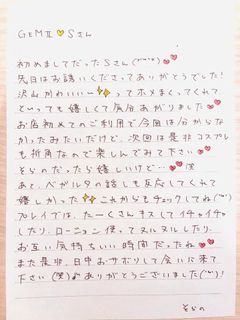 GEMⅡ♡Sさん
初めましてだったSさん(*^^*)
先日はお誘いくださってありがとうでした!
沢山かわいい〜✨ってホメまくってくれて
といっても嬉しくて気分あがりました
お店初めてのご利用で今回は分からな
かったみたいだけど、次回は是非コスプレ
も折角なので楽しんでみて下さい
そらのだったら嬉しいけど…笑
あと、ベガルタの話しも反応してくれて
嬉しかった✨これからもチェックしてね(^^)
プレイでは、たーくさんキスしてイチャイチャ
したり、ローション使ってヌルヌルしたり、
お互い気持ちいい時間だったね
また是非、日中おサボりして会いに来て
下さい(笑)♪ありがとうございました(^^)!
そらの